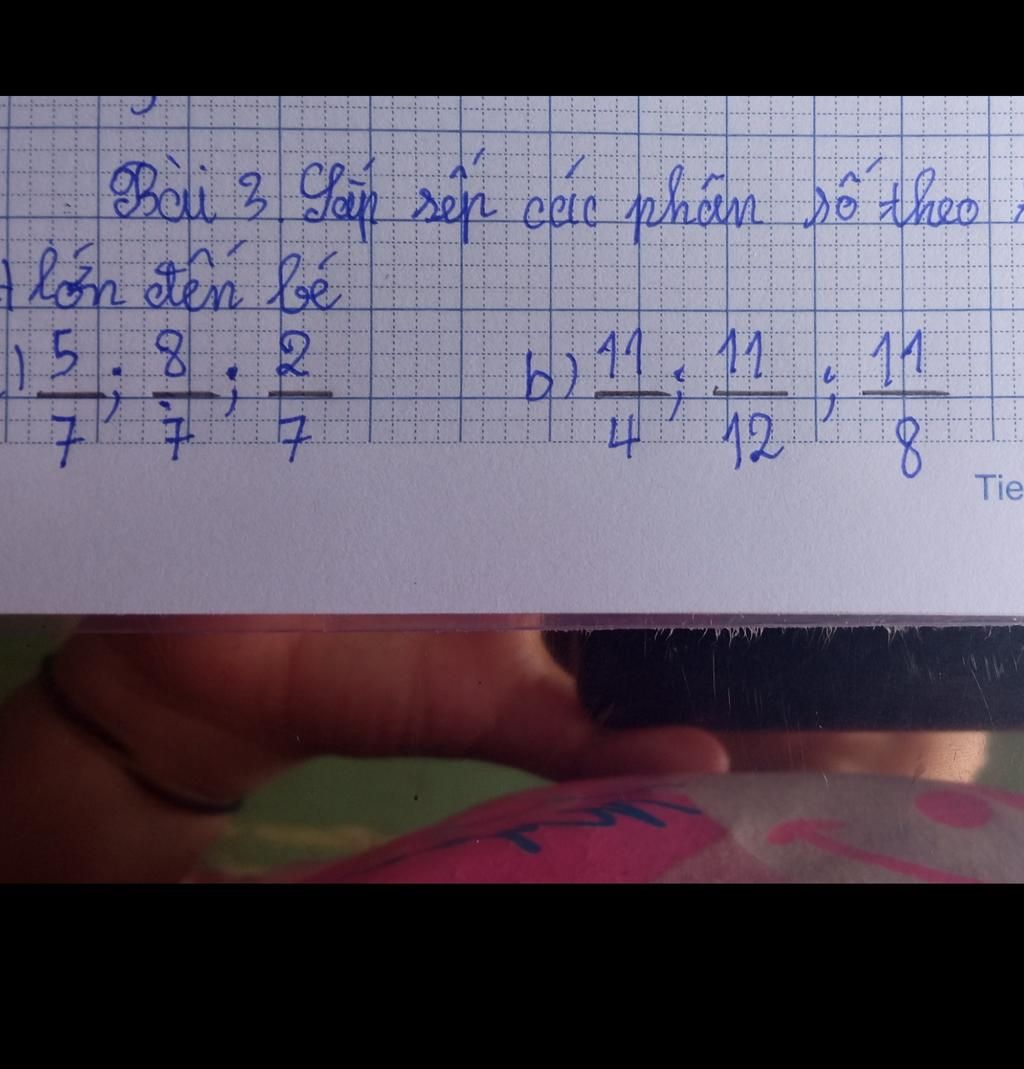 Bài 3. Sắp xếp các phân số theo
lớn đến bé
) 5/7 ; 8/7 ; 2/7 b) 11/4 ; 11/12 ; 11/8
Tie